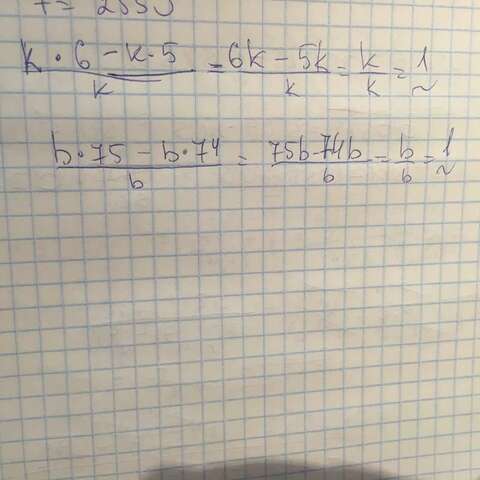 (k · 6 - k · 5)/k = (6k - 5k)/k = k/k = 1
(b · 75 - b · 74)/b = (75b - 74b)/b = b/b = 1